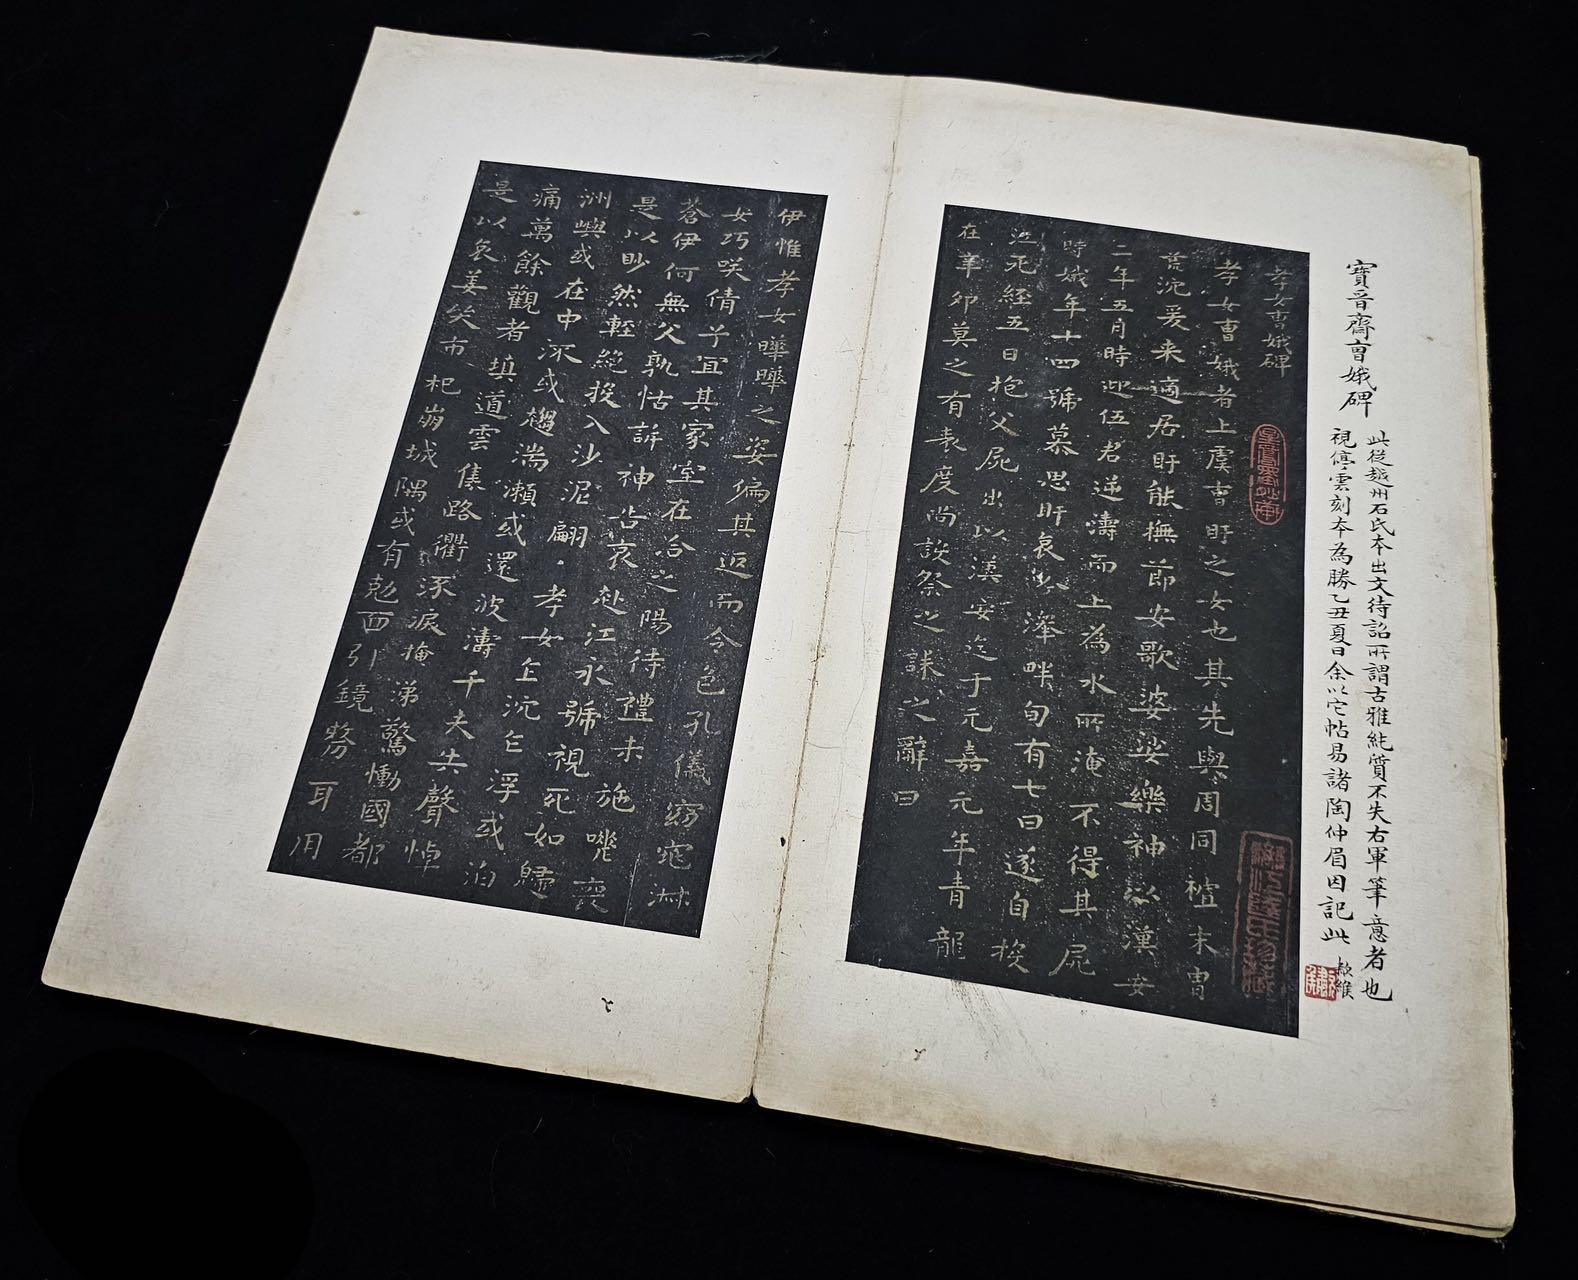 寶晉齋曹娥碑
此從越州石氏本出文待詔所謂古雅純質不失右軍筆意者也
視停雲刻本為勝乙丑夏日余以它帖易諸陶仲眉因記此
孝女曹娥碑
孝女曹娥者上虞曹盱之女也其先與周同祖末冑
荒沈爰来適居盱能撫節安歌婆娑樂神以漢安
二年五月時迎伍君逆濤而上為水所淹不得其屍
時娥年十四號慕思盱哀吟澤畔旬有七日遂自投
江死經五日抱父屍出以漢安迄于元嘉元年青龍
在辛卯莫之有表度尚設祭之誄之辭曰
伊惟孝女曄曄之姿偏其返而令色孔儀窈窕淑
女巧咲倩兮宜其家室在合之陽待禮未施嗟喪
蒼伊何無父孰怙訴神告哀赴江永號視死如歸
是以眇然輕絕投入沙泥翩翩孝女乍沉乍浮或泊
洲嶼或在中流或趨湍瀨或還波濤千夫失聲悼
痛萬餘觀者填道雲集路衢流淚掩涕驚慟國都
是以哀姜哭市杞崩城隅或有剋面引鏡剺耳用